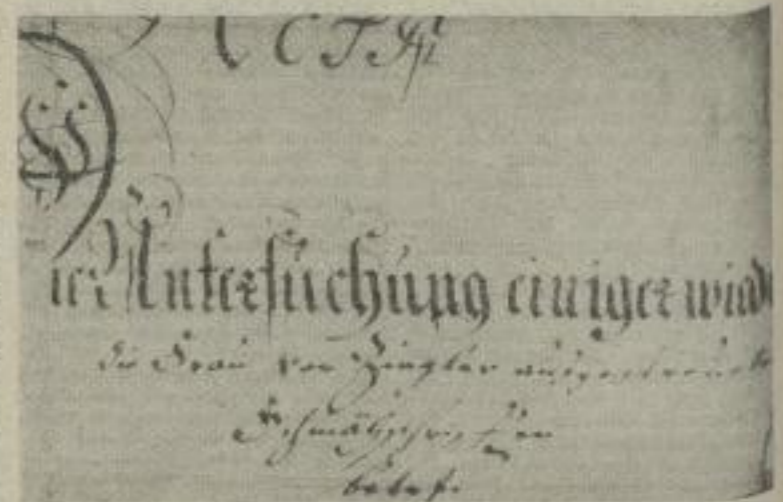 ACTA
Die Untersuchung einiger wied
die Frau von Ziegler ausgestreuete
Schmähschriften
betrf.